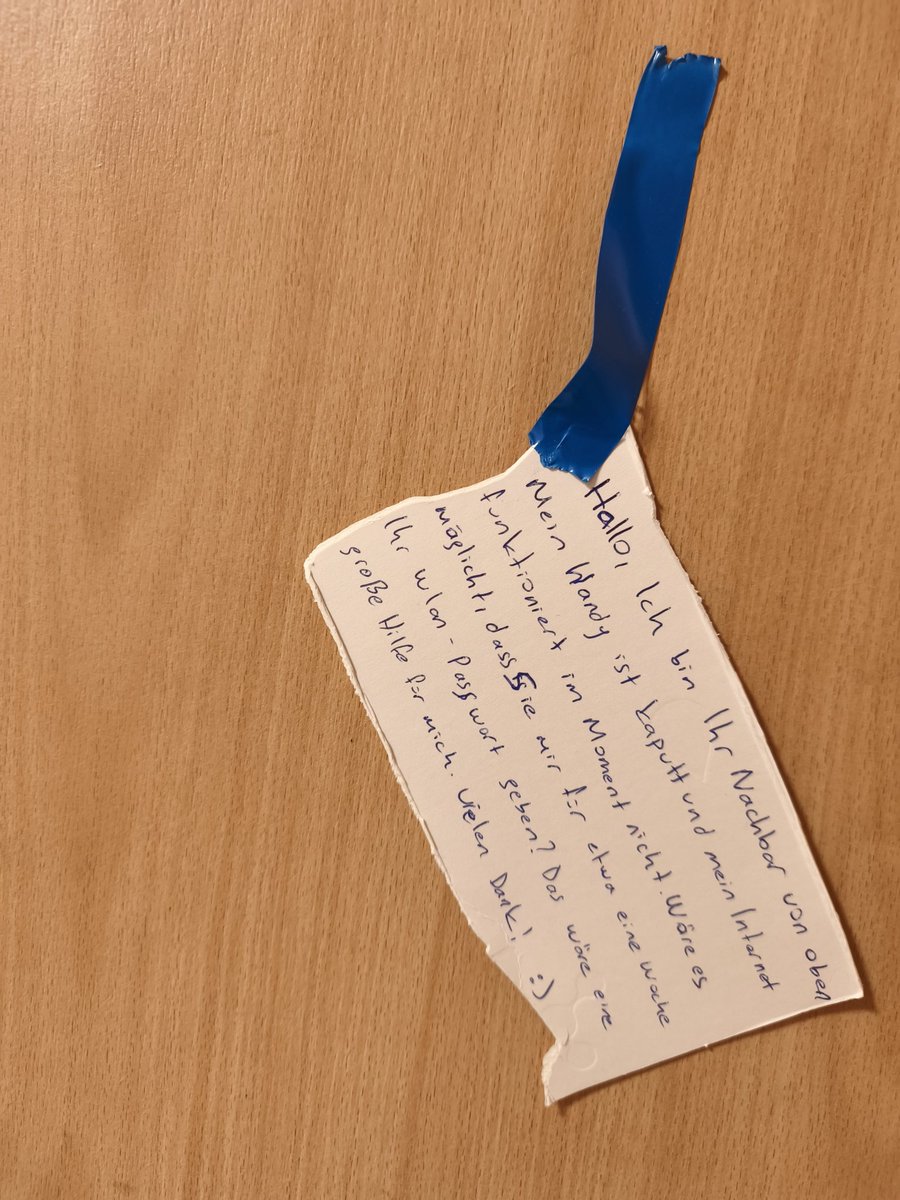 Hallo, Ich bin Ihr Nachbar von oben
Mein Handy ist kaputt und mein Internet
funktioniert im Moment nicht. Wäre es
möglicht, dass Sie mir für etwa eine woche
Ihr wlan-passwort geben? Das wäre eine
große Hilfe für mich. vielen Dank! :)